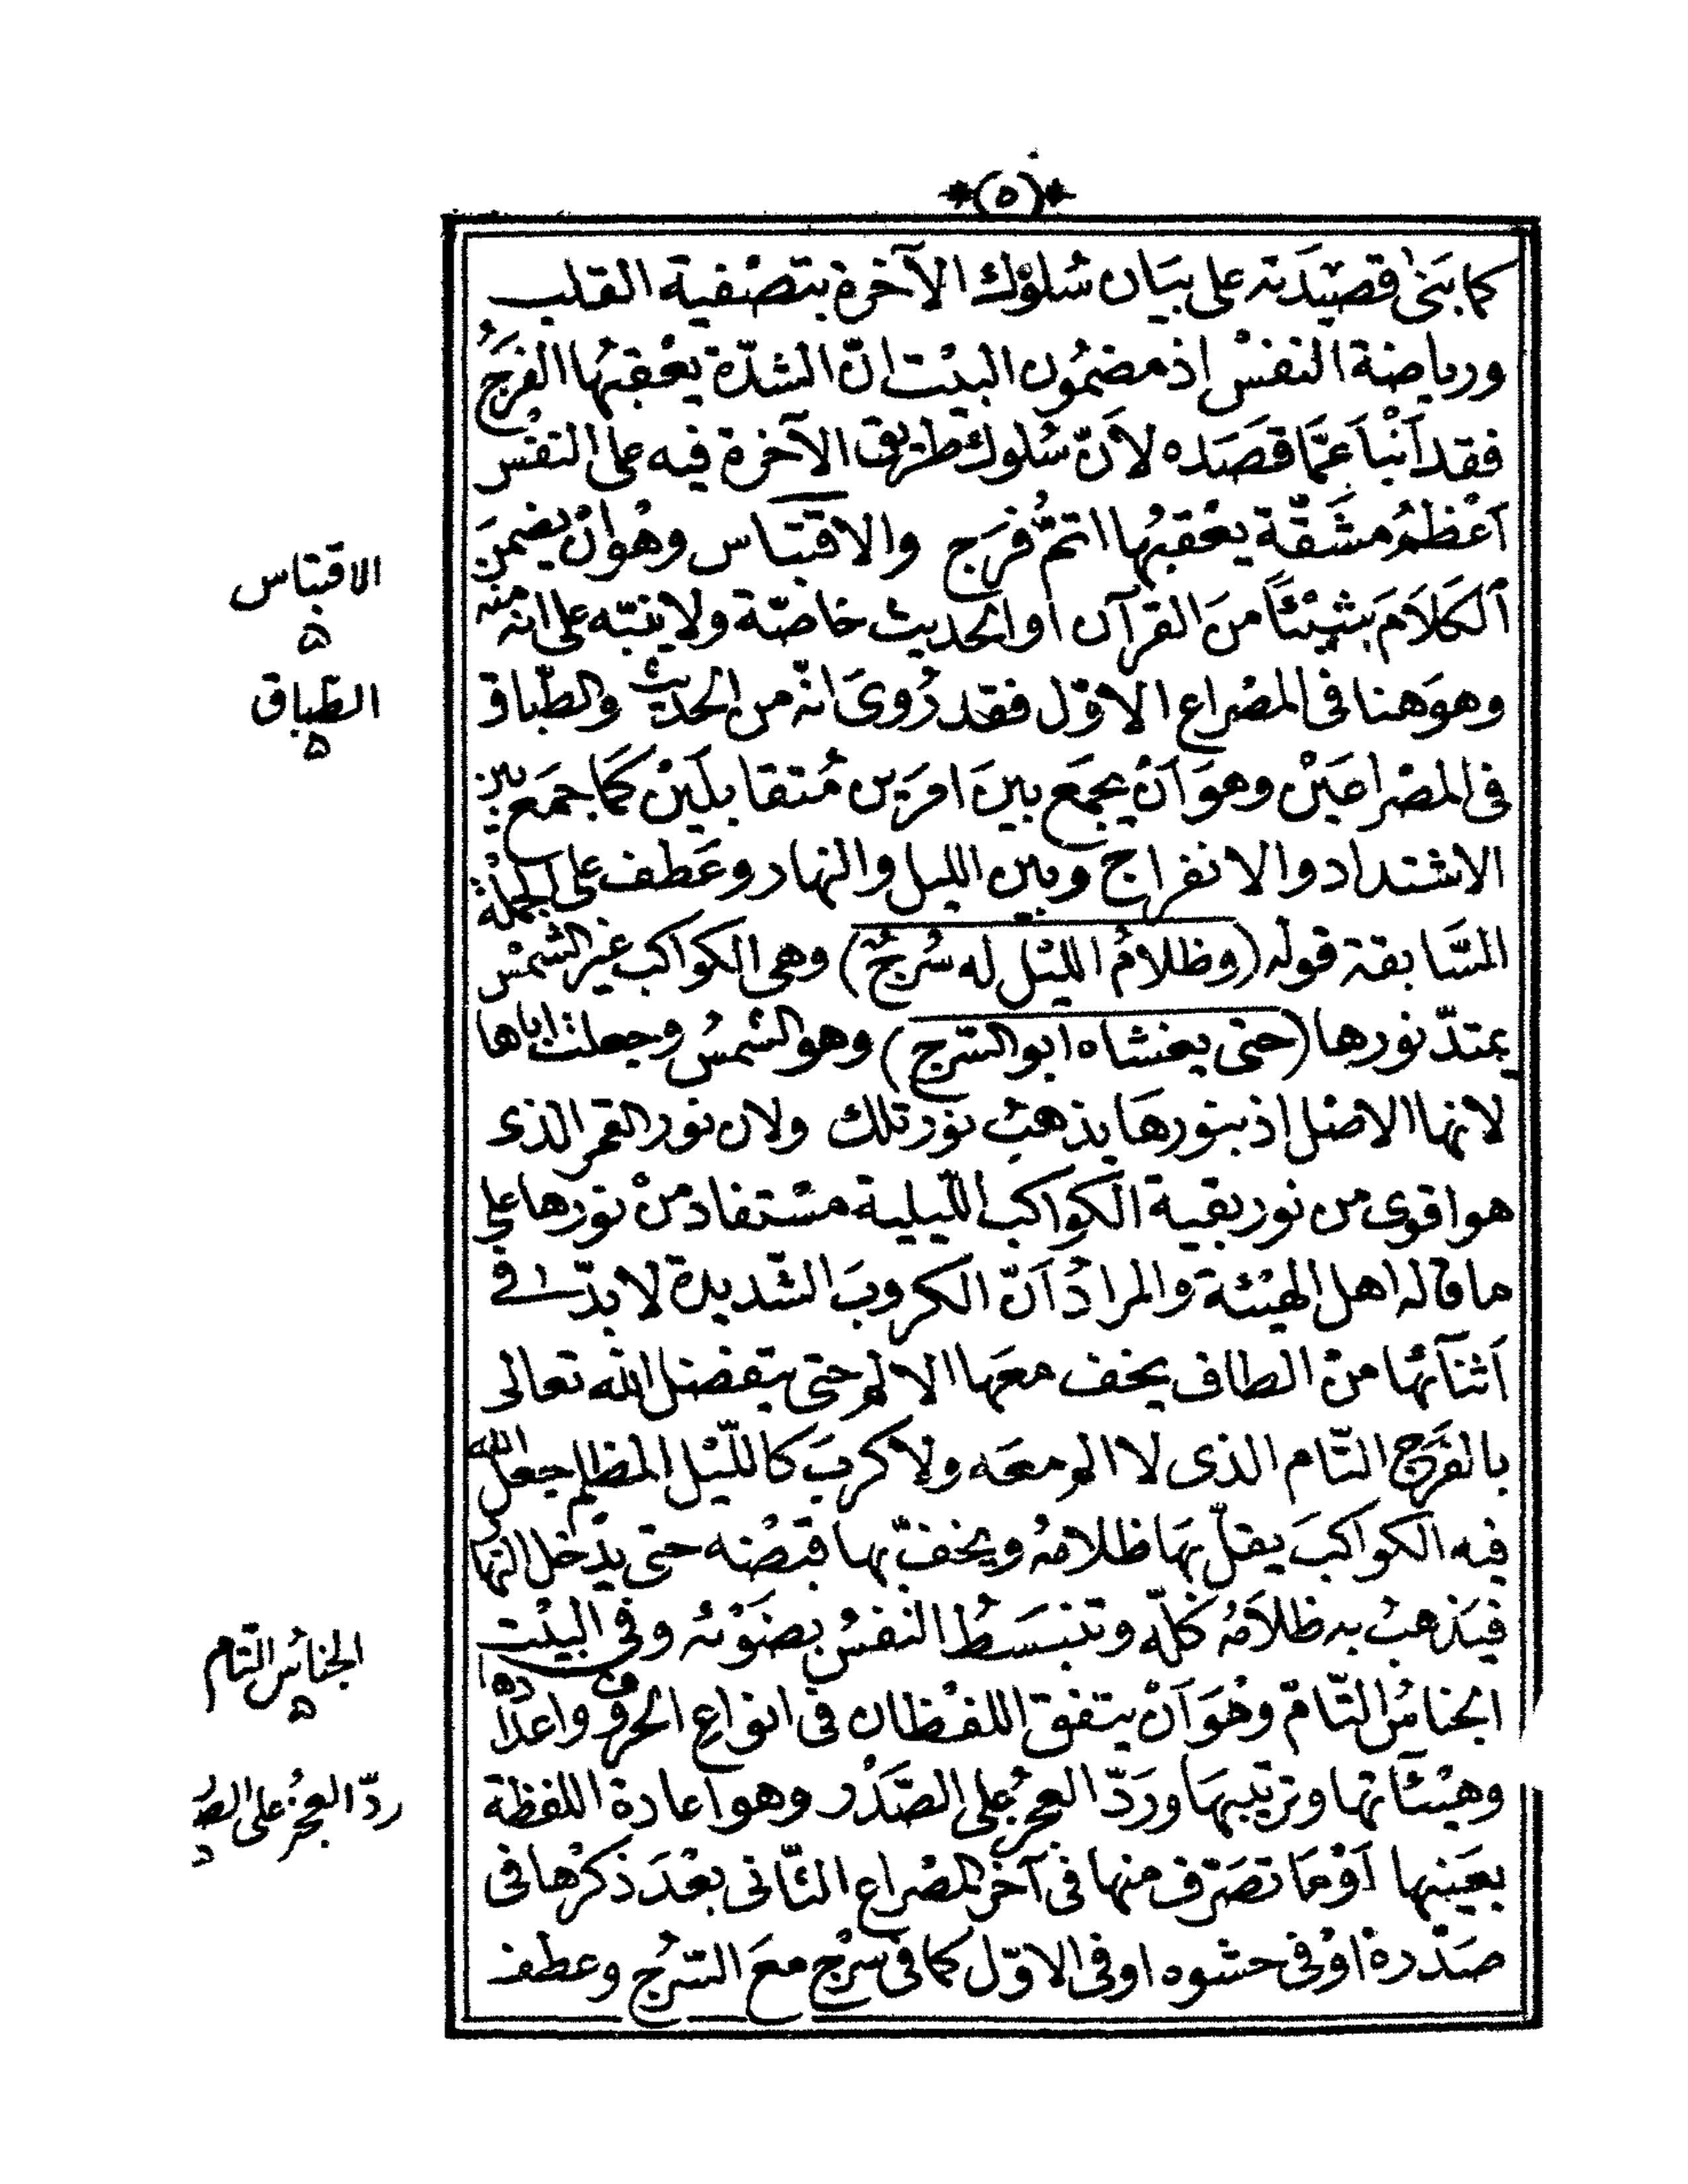 *(٥)*
كما بَنٰى قصيدَته على بيَان سُلوْك الآخرة بتصْفية القلب
ورياضة النفسْ إذ مضمُون البيْت انّ الشدّة يعْقبهُا الفرَجُ
فقد اَنْبأ عمَّا قصَدَه لاَنّ سُلوك طريق الآخرة فيه على النفْس
اَعْظمُ مشَقّة يعْقبهُا اتمُّ فرَج والاقتباس وهْو انْ يضمنَ
اَلكَلاَمَ شيْئاً منَ القرآن او الحديث خاصّة ولا ينبّه على انه منه
وهوَ هنا فى المصْراع الاوّل فقد رُوىَ انّه من الحديث والطّباق
فى المصْراعَيْن وهوَ اَنْ يجمَع بينَ امرَين مُتقابلَيْن كمَا جمَع بين
الاشتداد والانفراج وبين الليل والنهار وعَطف على الجملة
السَّابقة قوله (وظلامُ الليْل له سُرجٌ) وهى الكواكب غير الشمْس
يمتدّ نورها (حتى يغشاه ابو السّرج) وهو الشمسُ وجعلت اباها
لانها الاصْل إذ بنورهَا يذهبُ نوْر تلك ولان نور القمر الذى
هو اقوى من نور بقية الكواكب اللّيلية مسْتفاد منْ نورها على
ما قاله اهل الهيْئة والمرادُ اَنّ الكروبَ الشّديدة لا بدّ فى
اَثنآئها منْ الطاف يخف معَها الالم حتى يتفضل الله تعالى
بالفَرَج التّام الذى لا الم معَه ولا كربَ كاللّيْل المظلم جعل الله
فيه الكواكبَ يقلّ بهَا ظلامُه ويخفّ بها قبضْه حتى يدْخل النهار
فيَذهبُ به ظلاَمُه كلّه وتنبسَطُ النفسُ بضَوْئه وفى البيْت
الجناسُ التّامّ وهْوَ اَنْ يتفق اللفْظان فى انواع الحروف واعدادها
وهيْئآتها وترتيبهَا ورَدّ العجُز على الصَّدْر وهو اعادة اللفظة
بعَينها اَوْ مَا تصَرّف منها فى آخر المصْراع الثّانى بعْدَ ذكرْها فى
صَدْره اوْ فى حشوه او فى الاوّل كما فى سرُج معَ السّرُج وعطف
الاقتباس
ه
الطّباق
ه
الجناسُ التّام
ه
ردّ العجُز على الصد
ر